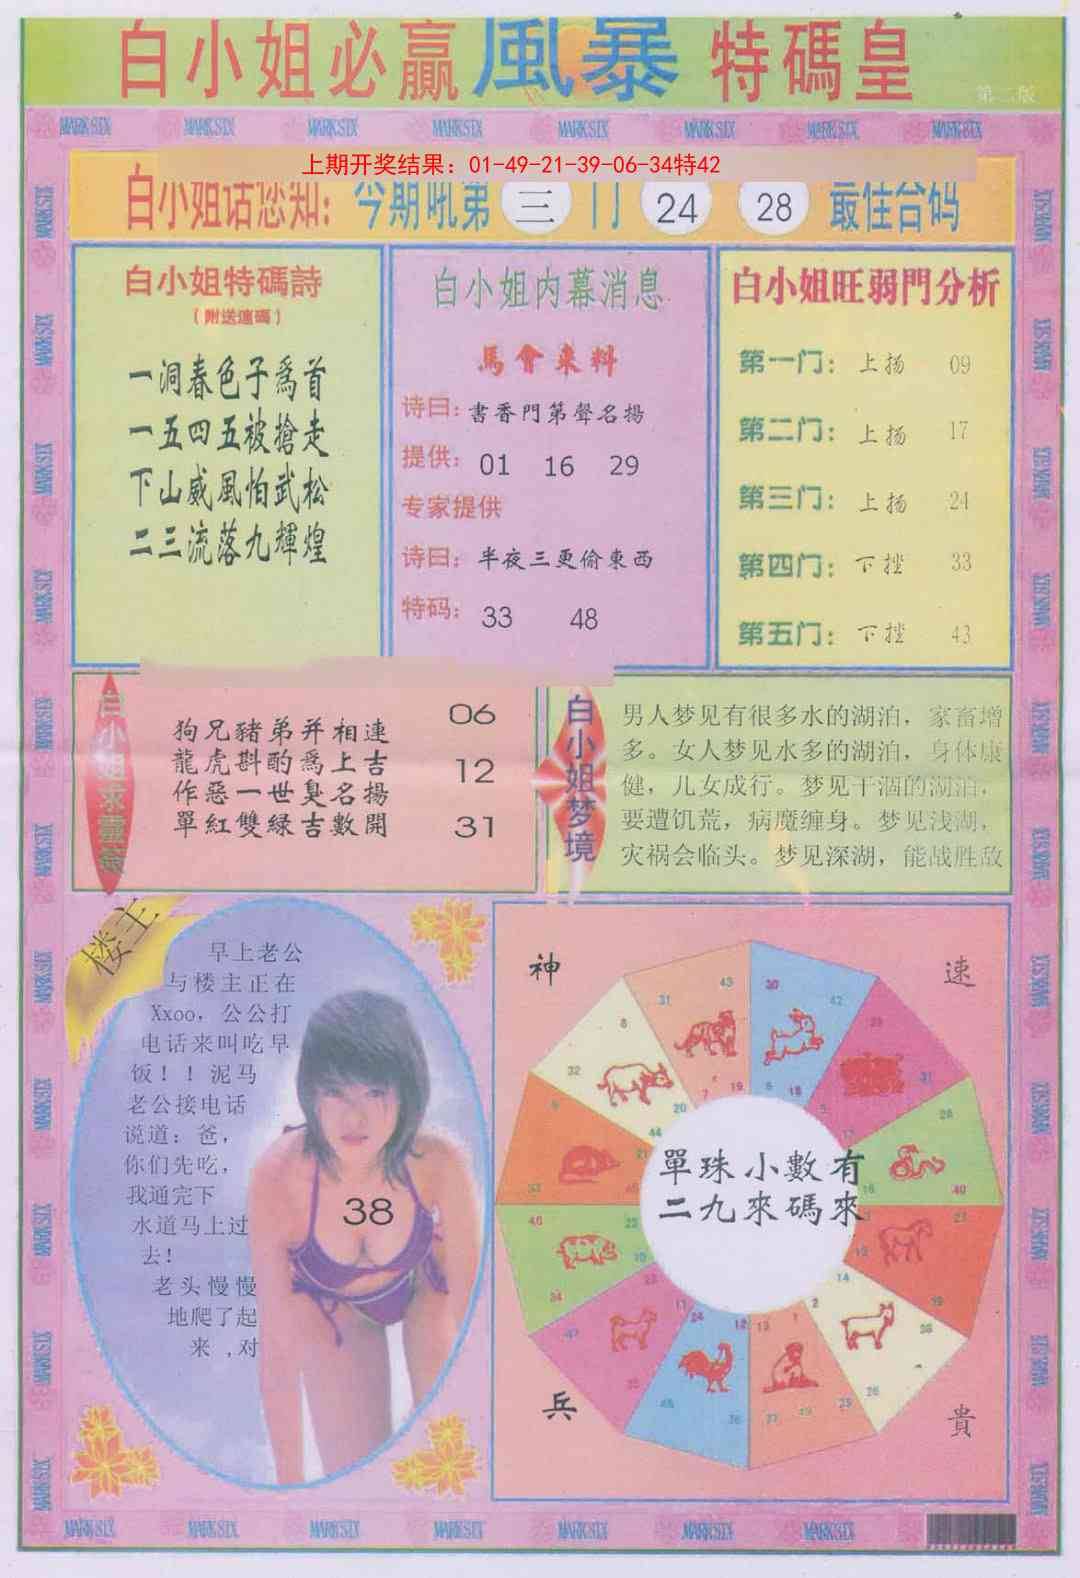 白小姐必贏風暴特碼皇
第二版
MARKSIX MARKSIX MARKSIX MARKSIX MARKSIX MARKSIX MARKSIX MARKSIX
上期开奖结果：01-49-21-39-06-34特42
白小姐话您知：今期吼第三门 24 28 最佳台码
白小姐特碼詩
（附送速碼）
一洞春色子爲首
一五四五被搶走
下山威風怕武松
二三流落九輝煌
白小姐内幕消息
馬會來料
诗曰：書香門第聲名揚
提供：01 16 29
专家提供
诗曰：半夜三更偷東西
特码：33 48
白小姐旺弱門分析
第一门：上扬 09
第二门：上扬 17
第三门：上扬 24
第四门：下挫 33
第五门：下挫 43
狗兄豬弟并相連
龍虎斟酌爲上吉
作惡一世臭名揚
單紅雙緑吉數開
06
12
31
白小姐梦境
男人梦见有很多水的湖泊，家畜增
多。女人梦见水多的湖泊，身体康
健，儿女成行。梦见干涸的湖泊，
要遭饥荒，病魔缠身。梦见浅湖，
灾祸会临头。梦见深湖，能战胜敌
楼主
早上老公
与楼主正在
Xxoo，公公打
电话来叫吃早
饭！！泥马
老公接电话
说道：爸，
你们先吃，
我通完下
水道马上过
去！
老头慢慢
地爬了起
来 ,对
38
神
速
43 30
31 42
8
32
7 19 6 18
20
44
單珠小數有
二九來碼來
14
2
24 12 13 1
兵
貴
MARKSIX MARKSIX MARKSIX MARKSIX MARKSIX MARKSIX MARKSIX